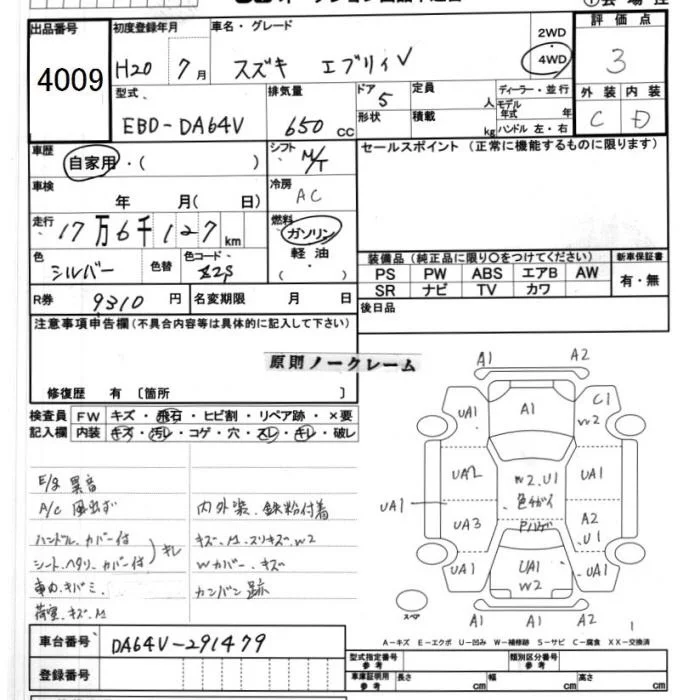 出品番号
4009
初度登録年月
H20 7月
車名・グレード
スズキ エブリィV
2WD
・
4WD
評価点
3
外装 内装
C D
型式
EBD-DA64V
排気量
650 CC
ドア 5
形状
定員 人
積載 kg
ディーラー・並行
モデル年式 年
ハンドル 左・右
車歴
自家用・( )
シフト
M/T
セールスポイント (正常に機能するものに限ります)
車検
年 月( 日)
冷房
AC
走行
17万6千127km
燃料
ガソリン
軽油
( ・ )
色
シルバー
色替
色コード
Z2S
R券 9310円
名変期限 月 日
装備品 (純正品に限り○をつけてください)
PS PW ABS エアB AW
SR ナビ TV カワ
新車保証書
有・無
後日品
注意事項申告欄(不具合内容等は具体的に記入して下さい)
原則ノークレーム
修復歴 有 〔箇所 〕
検査員
記入欄
FW キズ・飛石・ヒビ割・リペア跡・×要
内装 キズ・汚レ・コゲ・穴・スレ・キレ・破レ
E/g 異音
A/C 風出ず
ハンドル、カバー付
シート、ヘタリ、カバー付
キレ
車内、キバミ
荷室、キズ、M
内外装、鉄粉付着
キズ、M、スリキズ、W2
Wカバー、キズ
カンバン跡
A1 A2
UA1 A1 C1
W2
UA2 W2、U1 UA1
色チガイ
Pハゲ
UA1
UA3 A2
U1
UA1 UA1 UA1
W2
A1 A1 A2
スペア
1
A-キズ E-エクボ U-凹み W-補修跡 S-サビ C-腐食 XX-交換済
車台番号 DA64V-291479
登録番号
型式指定番号
参考
類別区分番号
参考
車庫証明用
参考
長さ cm 幅 cm 高さ cm